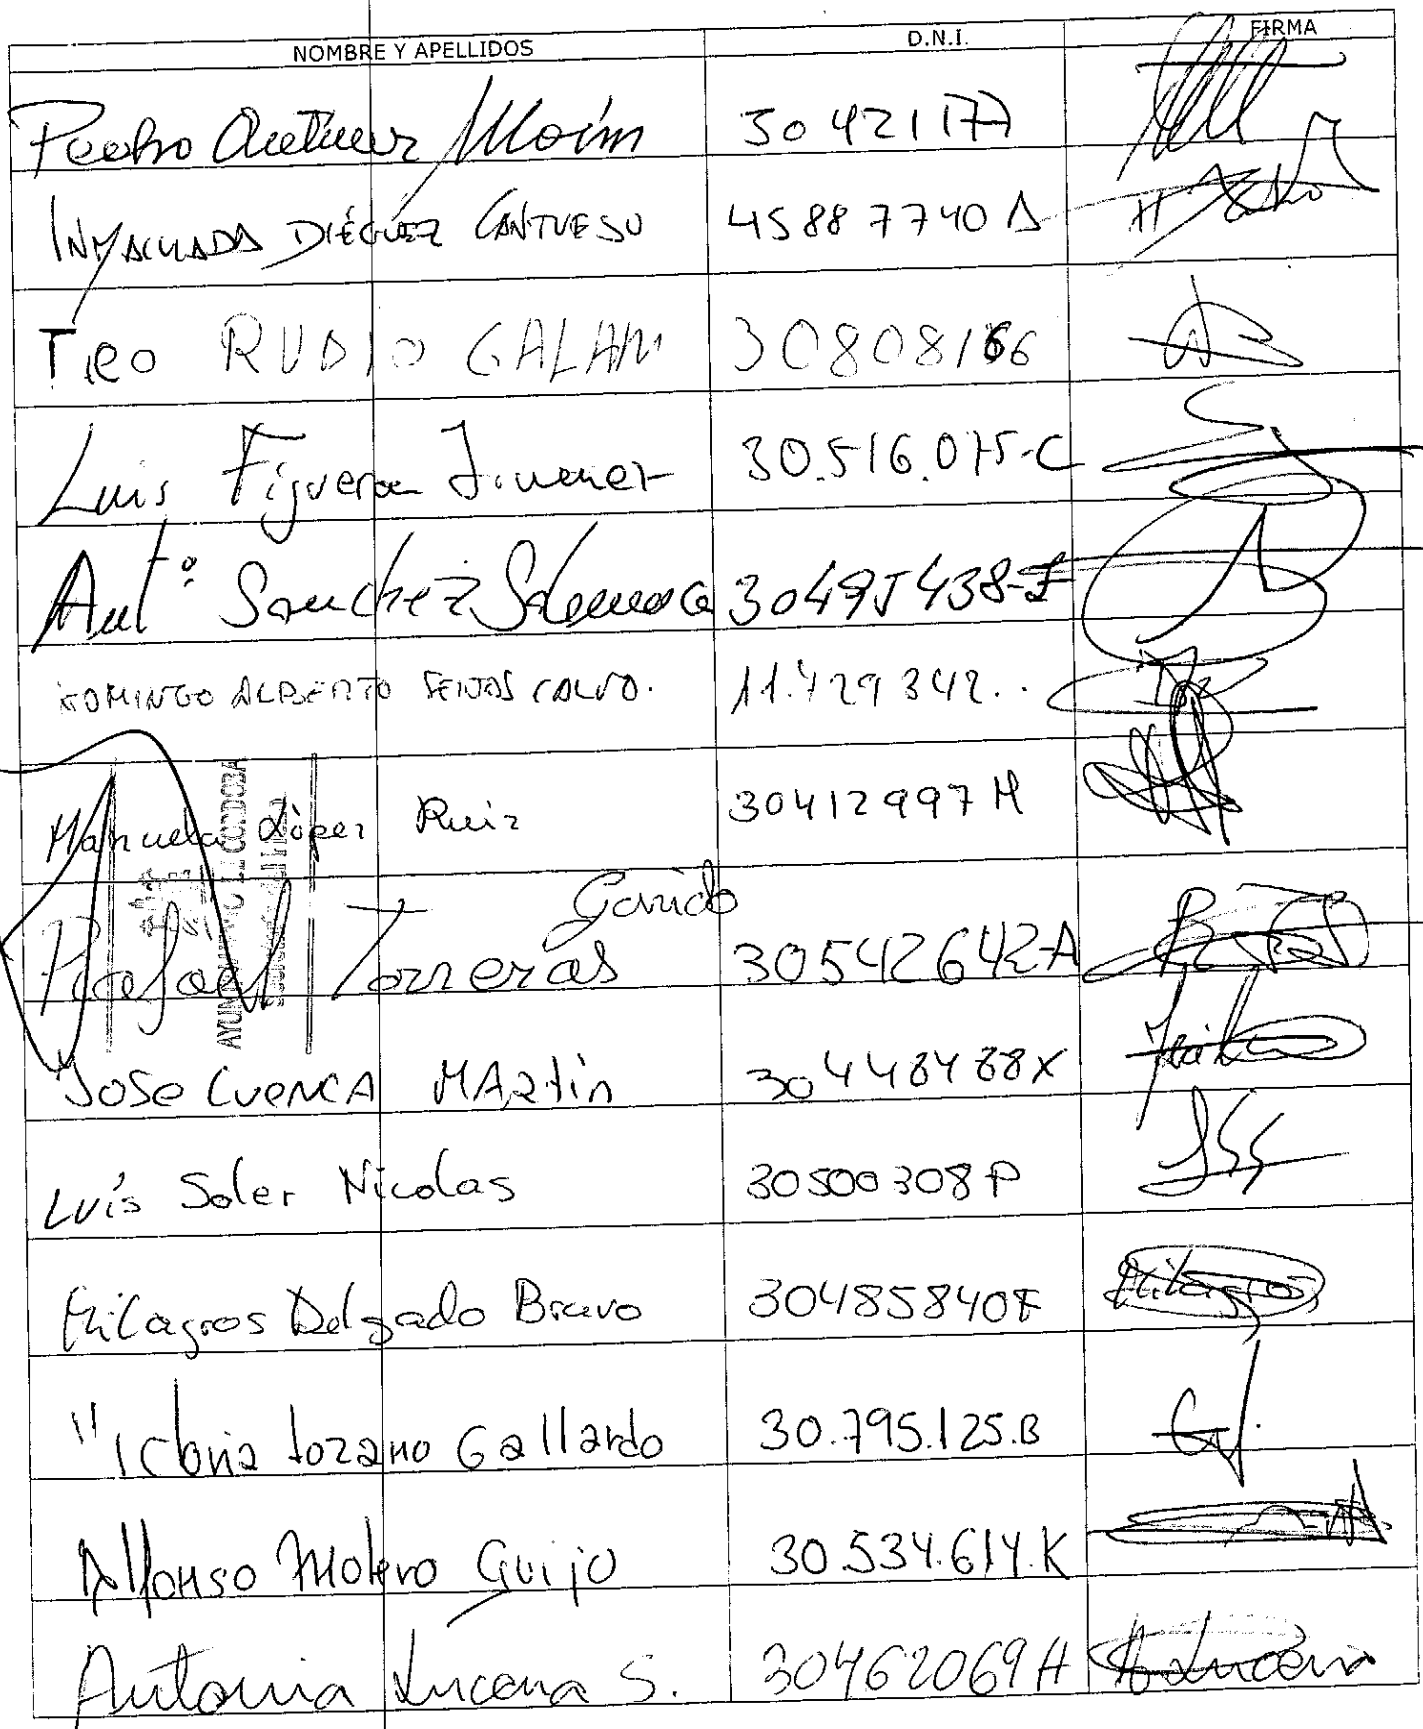 NOMBRE Y APELLIDOS D.N.I. FIRMA
Pedro
INMACULADA DIÉGUEZ CANTUESO 45887740 A
Teo RUBIO GALAN 30808166
Luis Figueroa Jimenez 30.516.075-C
Antº Sanchez 30495438-F
DOMINGO ALBERTO SEIJAS CALVO. 11.729342..
Manuela López Ruiz 30412997 M
Garrido
Rafael Torreras 30542642-A
AYUNTAMIENTO DE CORDOBA
JOSE CUENCA MARtin 30448488X
Luis Soler Nicolas 30500308P
Milagros Delgado Bravo 30485840F Milagros
Victoria Lozano Gallardo 30.795.125.B
Alfonso Molero Guijo 30.534.614.K
Antonia Lucena S. 30462069H A Lucena